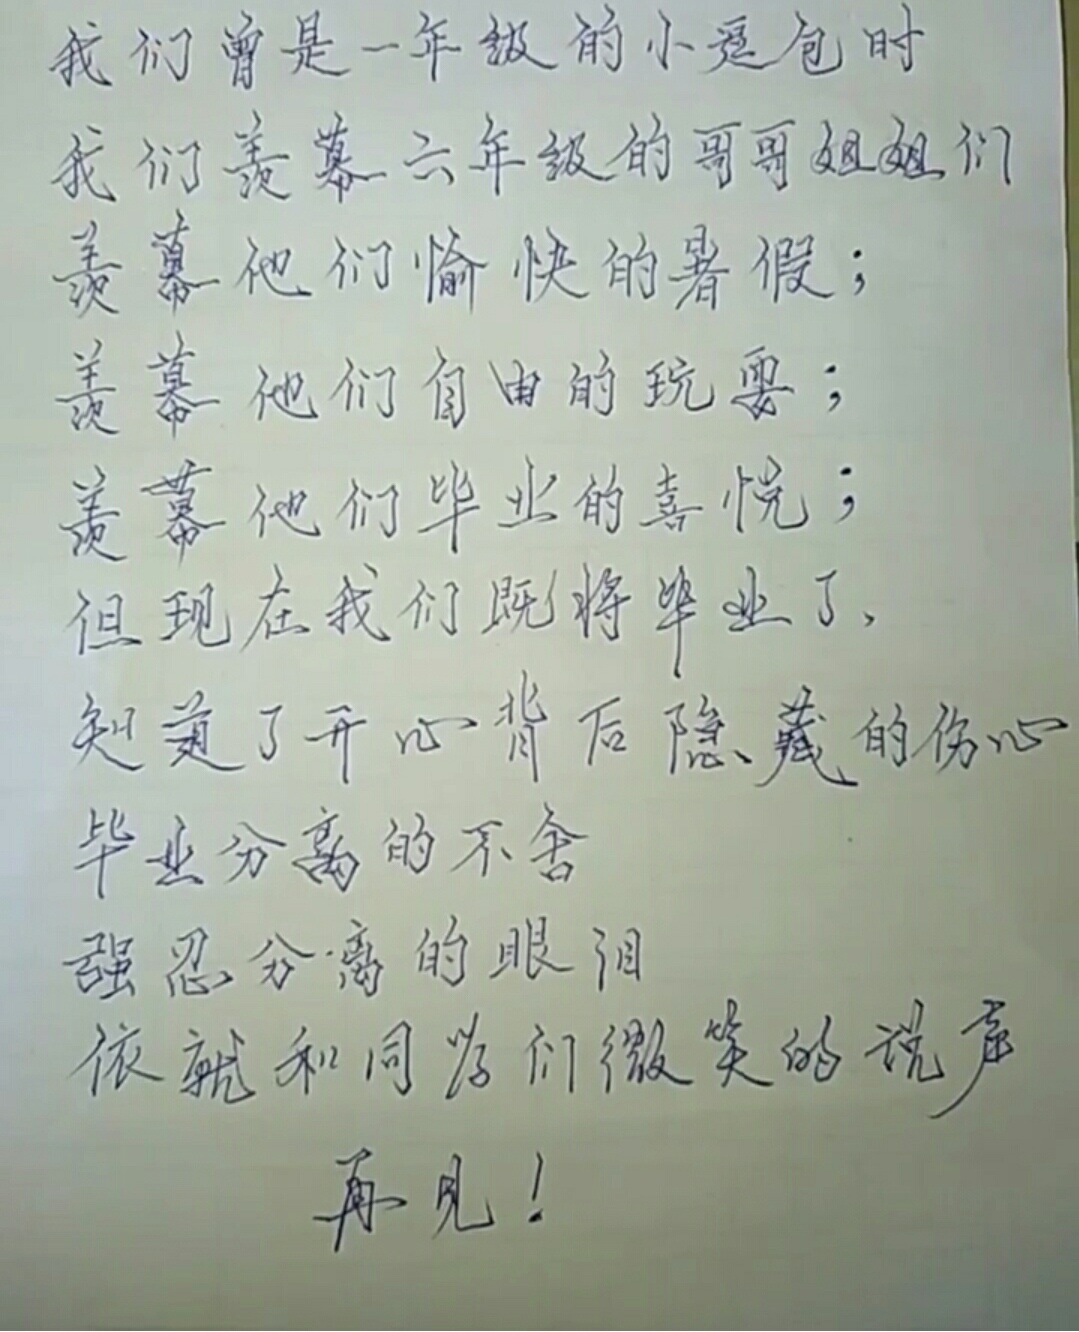 我们曾是一年级的小逗包时
我们羡幕六年级的哥哥姐姐们
羡幕他们愉快的暑假；
羡幕他们自由的玩耍；
羡幕他们毕业的喜悦；
但现在我们既将毕业了、
知道了开心背后隐藏的伤心
毕业分离的不舍
强忍分离的眼泪
依就和同学们微笑的说声
再见！